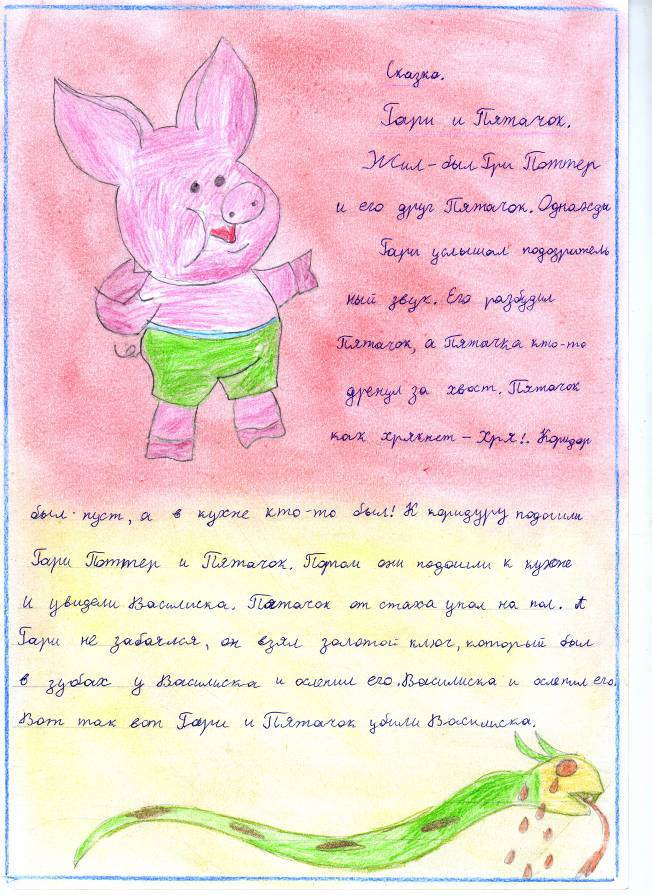 Сказка.
Гари и Пятачок.
Жил-был Гри Поттер
и его друг Пятачок. Однажды
Гари услышал подозритель
ный звук. Его разбудил
Пятачок, а Пятачка кто-то
дренул за хвост. Пятачок
как хрякнет - Хря!. Коридор
был пуст, а в кухне кто-то был! К коридуру подошли
Гари Поттер и Пятачок. Потом они подошли к кухне
и увидели Василиска. Пятачок от стаха упал на пол. А
Гари не забаялся, он взял золотой ключ, который был
в зубах у Василиска и ослепил его. Василиска и ослепил его.
Вот так вот Гари и Пятачок убили Василиска.